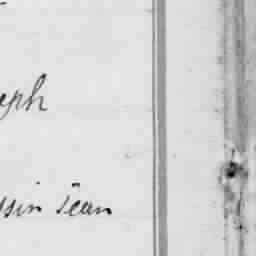 eph
ssin Jean